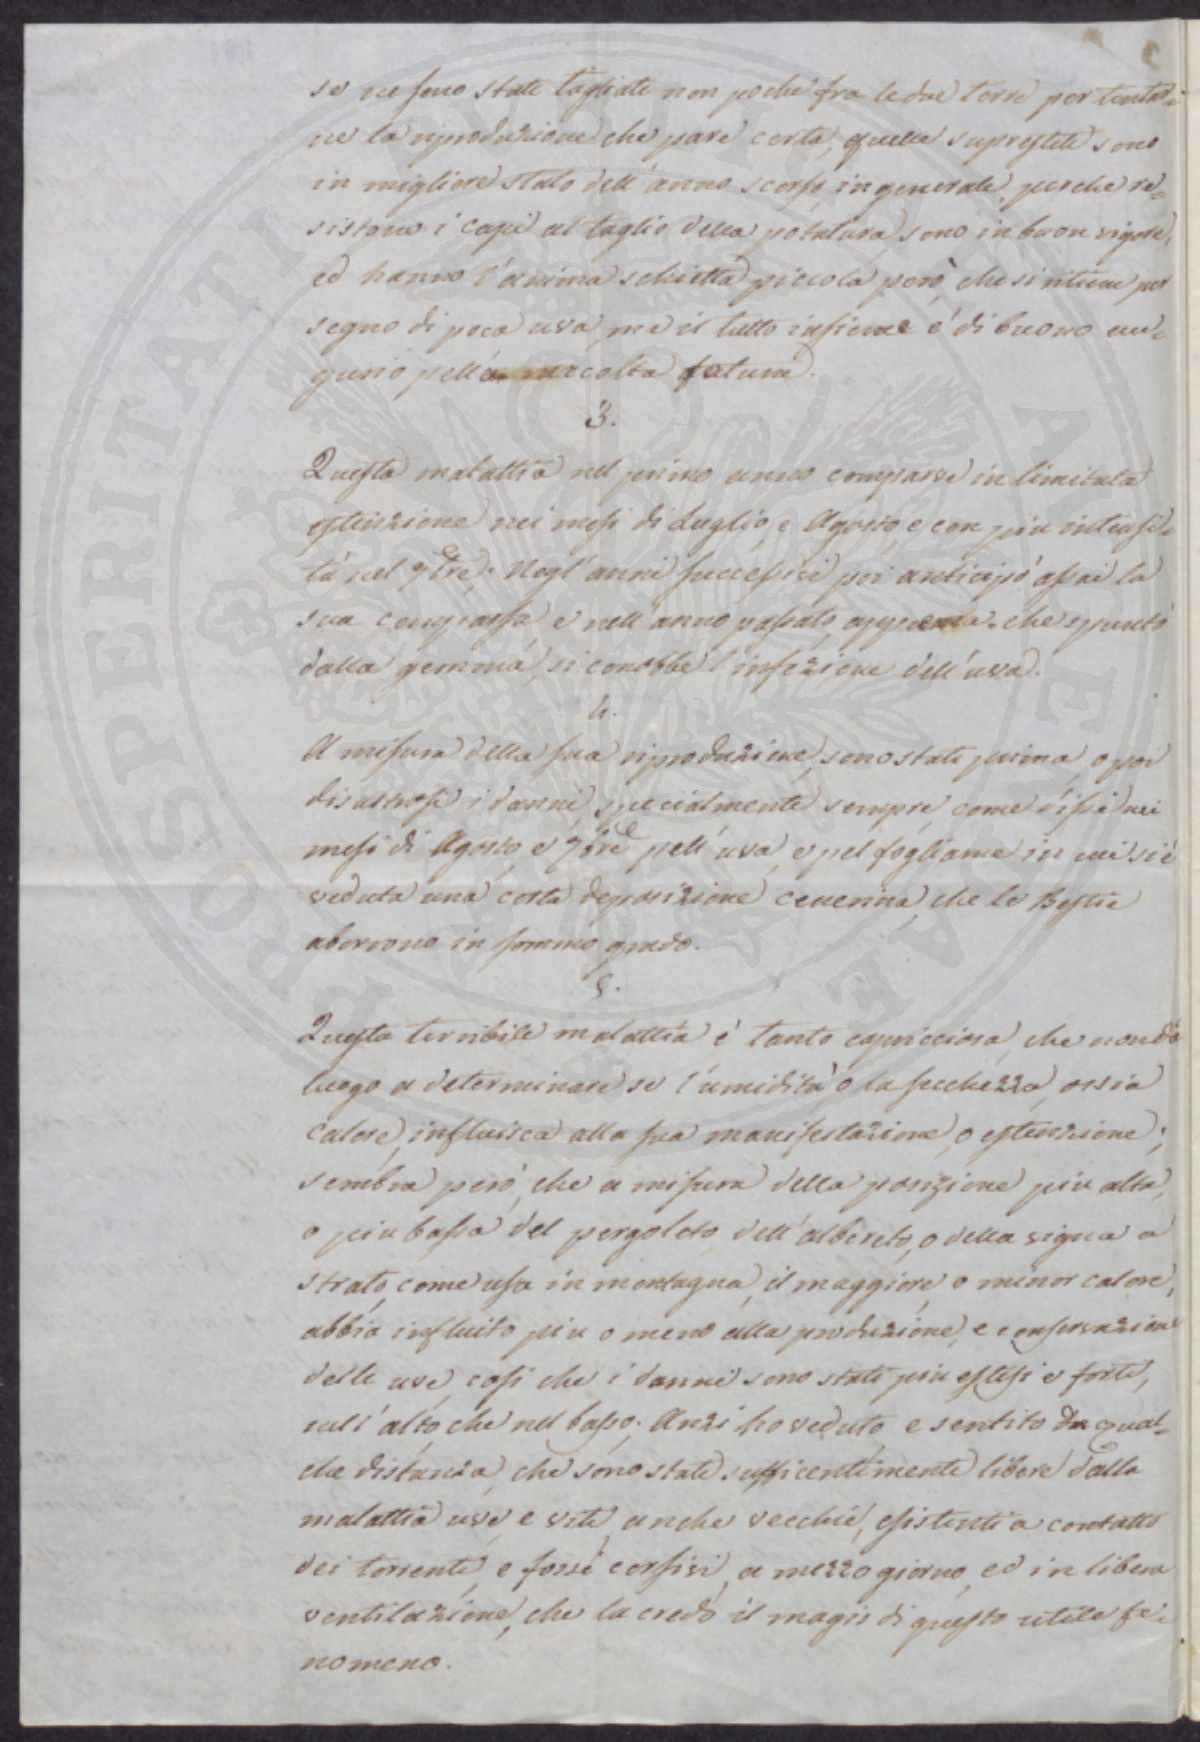 se ne sono state tagliate non poche fra le due terre per tentar=
ne la riproduzione che pare certa, quelle suprestiti sono
in migliore stato dell'anno scorso, in generale, perche re=
sistono i capi al taglio della potatura, sono in buon vigore,
ed hanno l'anima schietta piccola però, che si ritiene per
segno di poca uva, ma il tutto insieme è di buono au=
gurio pella raccolta futura.
3.
Questa malattia nel primo anno comparve in limitata
estenzione nei mesi di Luglio, e Agosto, e con piu intensi=
tà nel 7bre. Negl'anni successivi poi anticipò assai la
sua comparsa, e nell'anno passato, appena che spuntò
dalla gemma, si conobbe l'infezione dell'uva.
4.
A misura della sua riproduzione, sono stati prima, o poi
disastrosi i danni, specialmente sempre, come dissi nei
mesi di Agosto, e 7bre pell'uva, e pel fogliame in cui si è
veduta una certa deposizione cenerina, che le Bestie
aborrono in sommo grado.
5.
Questa terribile malattia è tanto capricciosa, che non dà
luogo a determinare se l'umidità, o la secchezza, ossia
calore, influisca alla sua manifestazione, o estenzione;
sembra però, che a misura della posizione piu alta,
o piu bassa del pergoleto, dell'albereto, o della vigna a
strato, come usa in montagna, il maggiore, o minor calore,
abbia influito piu o meno alla produzione, e conservazione
delle uve, cosi che i danni sono stati piu estesi e forti,
sull'alto, che nel basso. Anzi ho veduto, e sentito da qual=
che distanza, che sono state sufficentemente libere dalla
malattia uve, e viti, anche vecchie, esistenti a contatto
dei torrenti, e fossi corsivi, a mezzo giorno, ed in libera
ventilazione, che la credo il magis di questo utile fe=
nomeno.
PROSPERITATI AUCTAE